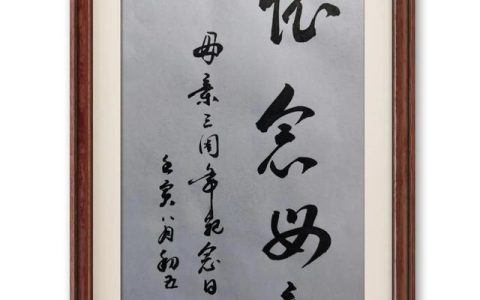 怀念母
母亲三周年纪念日
壬寅八月初五